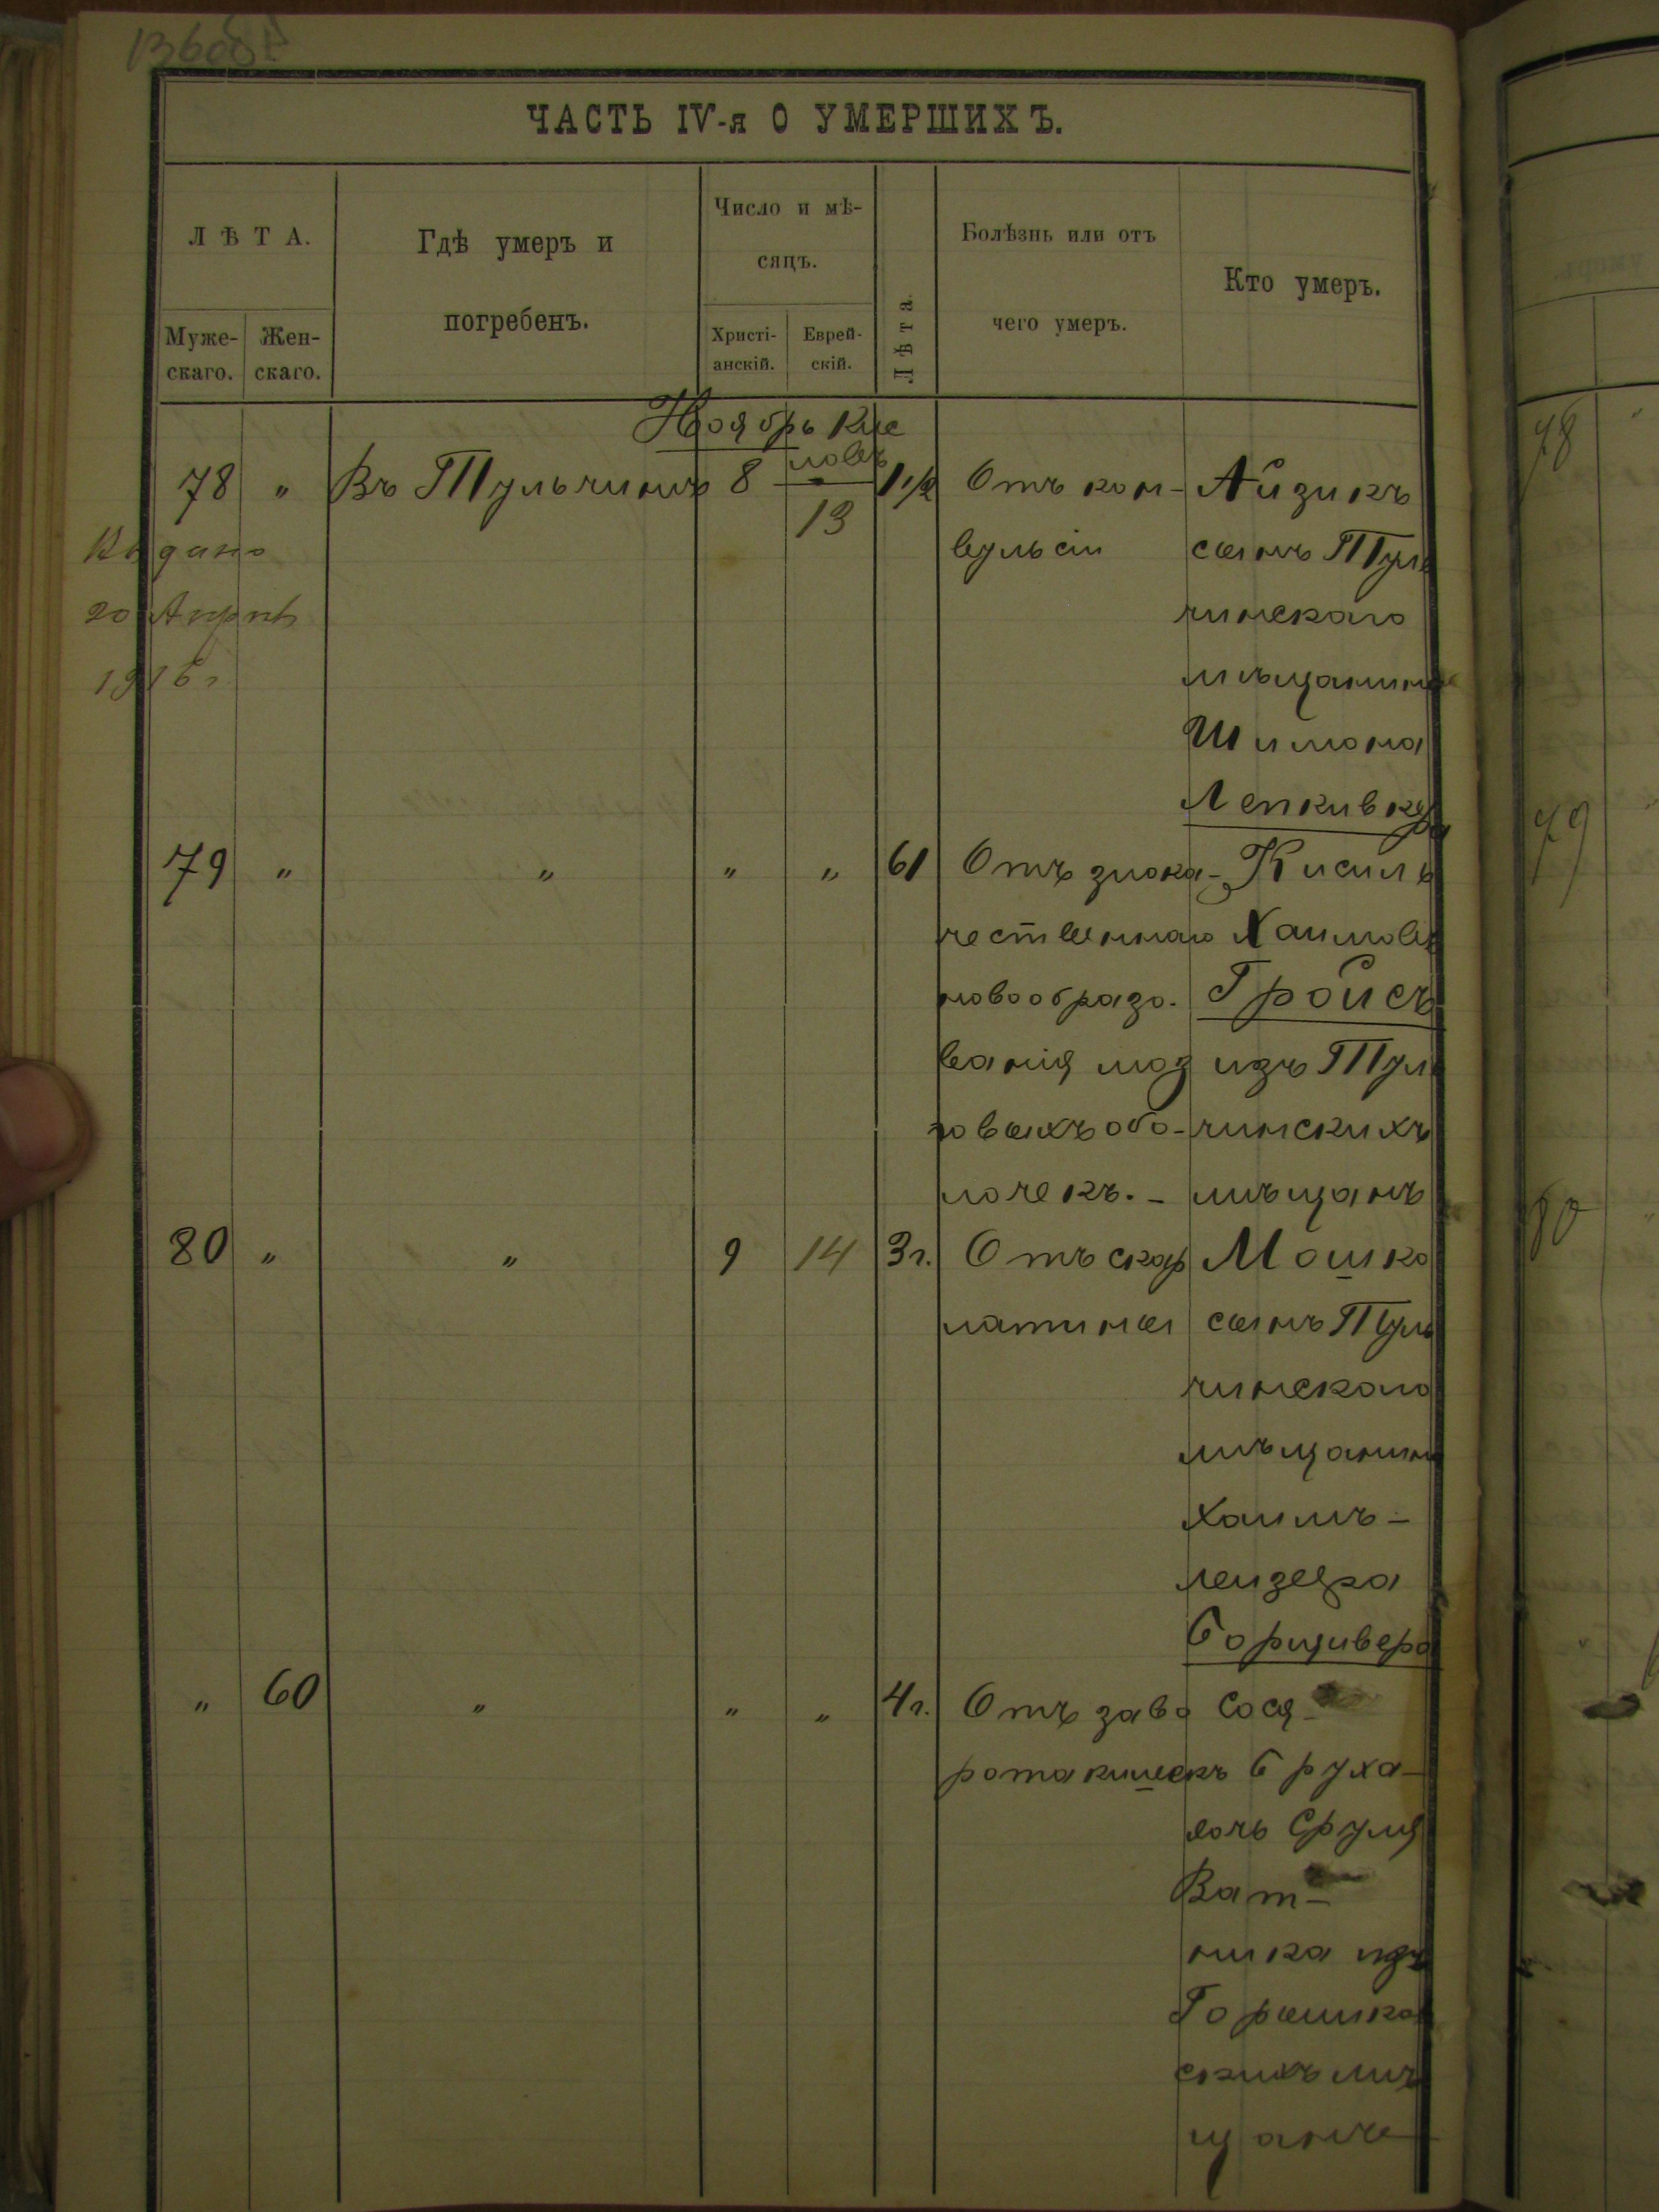 ЧАСТЬ IV-я О УМЕРШИХЪ.
ЛѢТА.
Муже-
скаго.
Жен-
скаго.
Гдѣ умеръ и
погребенъ.
Число и мѣ-
сяцъ.
Христі-
анскій.
Еврей-
скій.
Лѣта.
Болѣзнь или отъ
чего умеръ.
Кто умеръ.
Ноябрь Кис
левъ
78 „ Въ Тульчинѣ 8 13 1 1/2
Отъ кон-
вульсіи
Айзикъ
сынъ Туль
чинскаго
мѣщанина
Шимона
Выдано
20 Апрѣ
1916 г.
79 „ „ „ „ 61
Отъ злока-
чественнаго
новообразо-
ванія моз
говыхъ обо-
лочекъ.-
Кисиль
Хаимовъ
Гройсъ
изъ Туль
чинскихъ
мѣщанъ
80 „ „ 9 14 3 г.
Отъ скар
латины
Мошко
сынъ Туль
чинскаго
мѣщанина
Хаимъ-
лейзера
Борщивера
„ 60 „ „ „ 4 г.
Отъ заво
рота кишекъ
Сося-
Бруха-
дочь Сруля
Ват-
ника изъ
скихъ мѣ
78
79
80